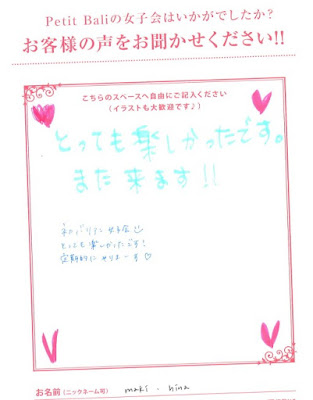 Petit Baliの女子会はいかがでしたか?
お客様の声をお聞かせください!!
こちらのスペースへ自由にご記入ください
(イラストも大歓迎です♪)
とっても楽しかったです。
また来ます!!
女子会
とっても楽しかったです!
定期的にやりまーす♡
お名前(ニックネーム可) maki・hina